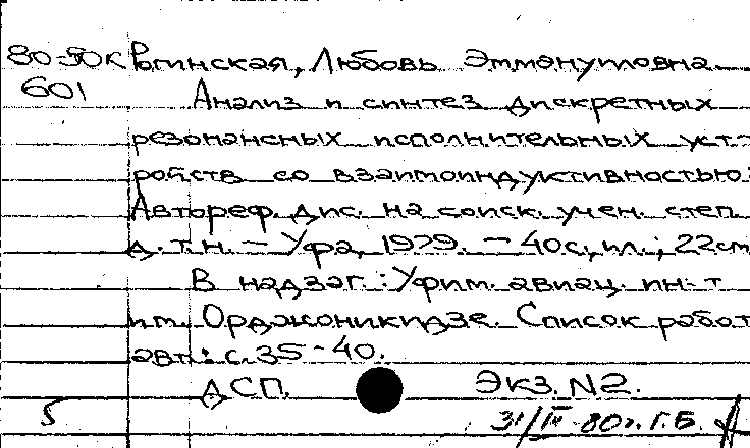 80-50К Рогинская, Любовь Эммануиловна.
601 Анализ и синтез дискретных
резонансных исполнительных уст-
ройств со взаимоиндуктивностью:
Автореф. дис. на соиск. учен. степ.
д.т.н. - Уфа, 1979. - 40с, ил.; 22см
В надзаг.: Уфим. авиац. ин-т
им. Орджоникидзе. Список работ
авт.: с. 35-40.
ДСП. Экз. N2.
5 31/III-80г. Г.Б.